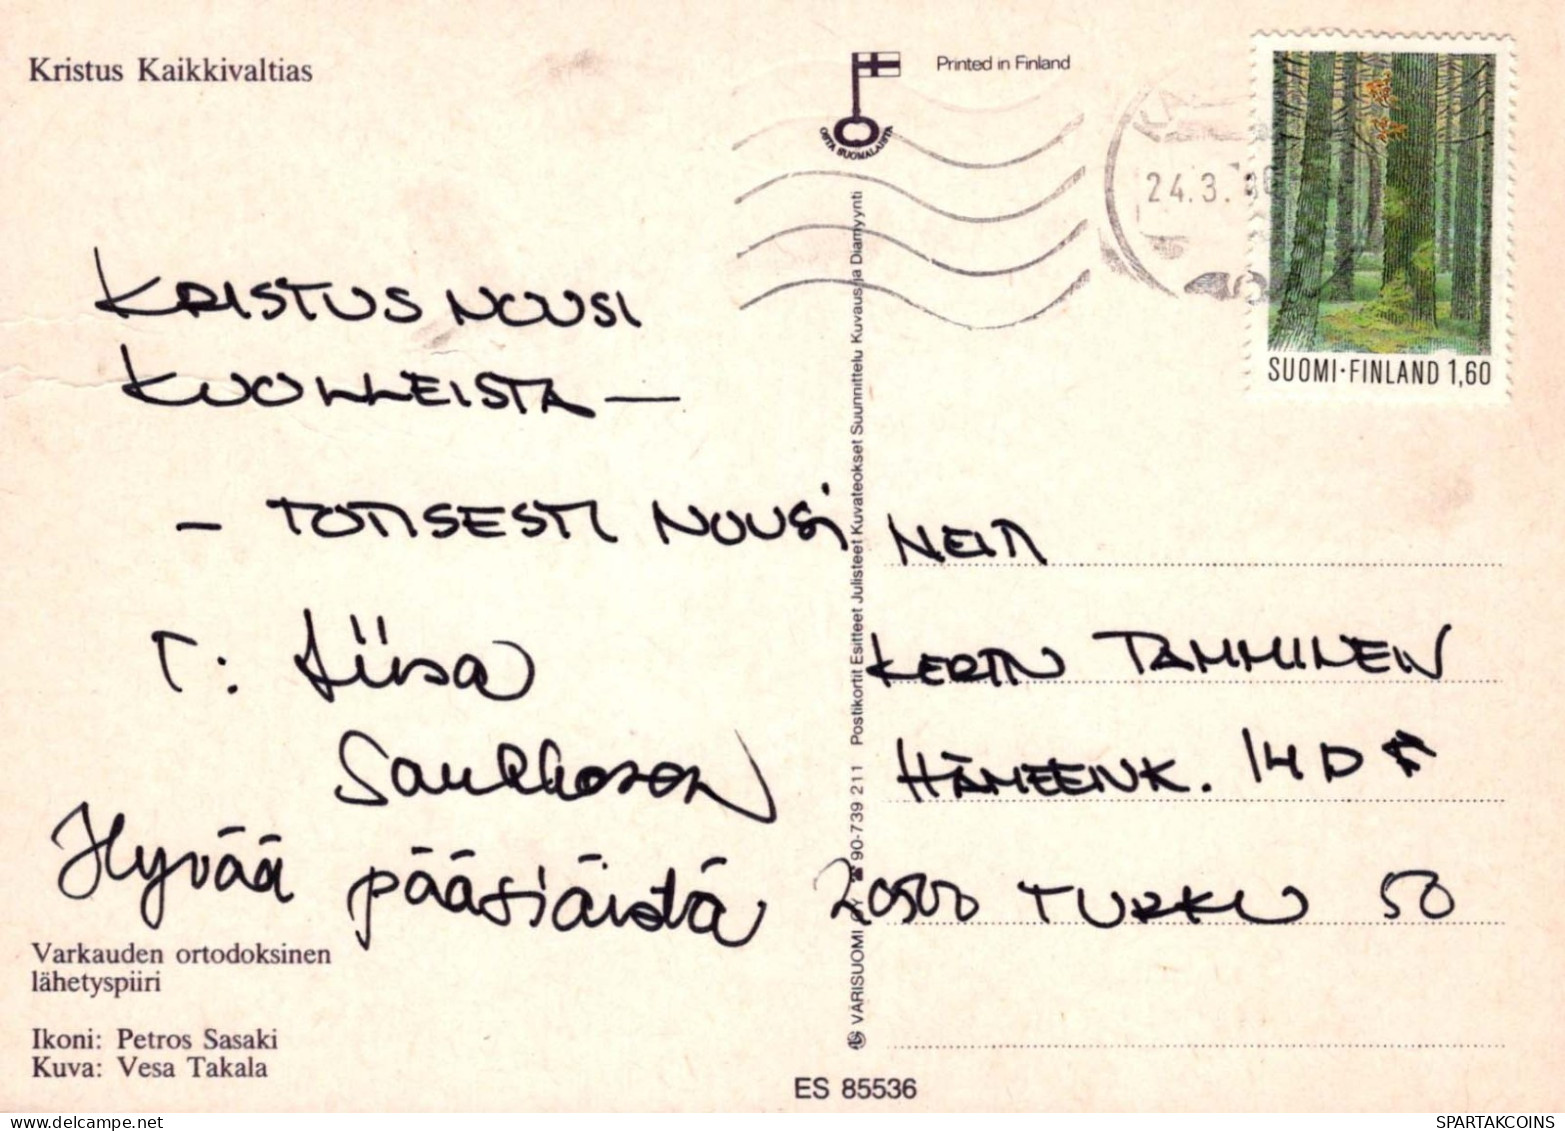 Kristus Kaikkivaltias
Printed in Finland
OSTA SUOMALAISTA
24.3.
SUOMI·FINLAND 1,60
KRISTUS NOUSI
KUOLLEISTA —
— TOTISESTI NOUSI
T: Liisa
Saukkonen
Hyvää pääsiäistä
NEITI
TAMMINEN
HÄMEENK. 14 D
20500 TURKU 50
Varkauden ortodoksinen
lähetyspiiri
Ikoni: Petros Sasaki
Kuva: Vesa Takala
VÄRISUOMI OY ☎ 90-739 211 Postikortit Esitteet Julisteet Kuvateokset Suunnittelu Kuvaus ja Diamyynti
ES 85536
SPARTAKCOINS